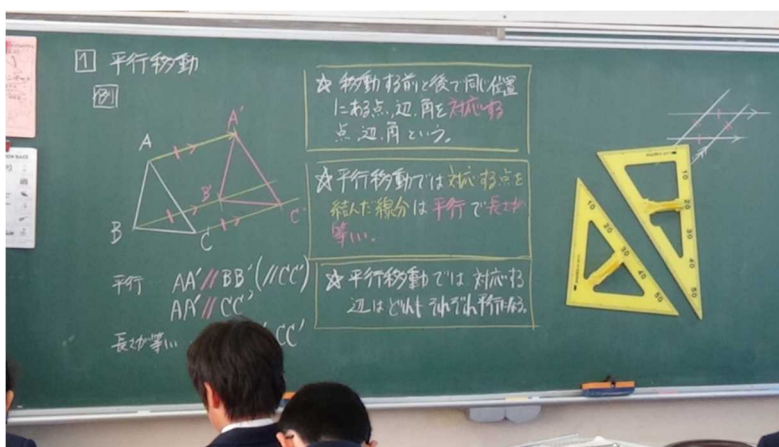 1 平行移動
例
A A'
B B' C C'
平行 AA'//BB'(//CC')
AA'//CC'
長さが等しい CC'
☆移動する前と後で同じ位置
にある点、辺、角を対応する
点、辺、角という。
☆平行移動では対応する点を
結んだ線分は平行で長さが
等しい。
☆平行移動では対応する
辺はどれもそれぞれ平行になる。
10
20
30
40
50
10
20
30
40
50